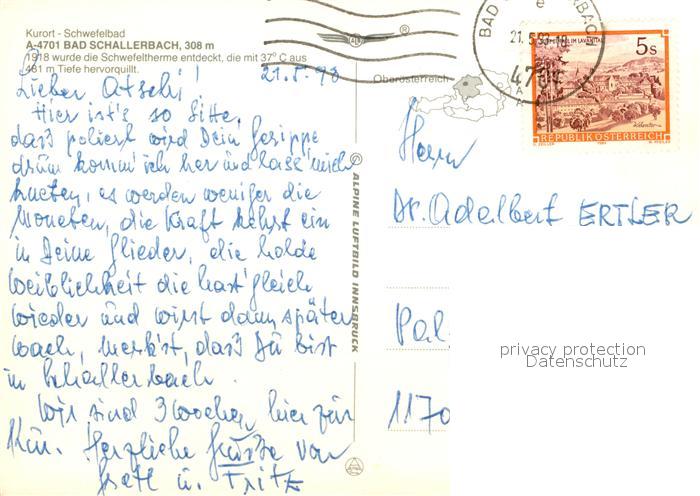 Kurort - Schwefelbad
A-4701 BAD SCHALLERBACH, 308 m
1918 wurde die Schwefeltherme entdeckt, die mit 37° C aus
461 m Tiefe hervorquillt.
21.5.93
Lieber Atschi!
Hier ist's so Sitte,
daß poliert wird Dein Gerippe
drum komm' ich her und lass' mich
kneten, es werden weniger die
Moneten, die Kraft kehrt ein
in Deine Glieder, die holde
Weiblichkeit die hast gleich
wieder und wirst dann später
wach, merkst, daß Du bist
in Schallerbach.
Wir sind 3 Wochen hier zur
Kur. Herzliche Grüsse von
u. Fritz
© ALPINE LUFTBILD INNSBRUCK
Oberösterreich
BAD SCHALLERBACH
21.5.93-18
4701
A
5s
ST. PAUL IM LAVANTTAL
Kärnten
REPUBLIK ÖSTERREICH
Herrn
Dr. Adalbert ERTLER
Pal
1170
privacy protection
Datenschutz